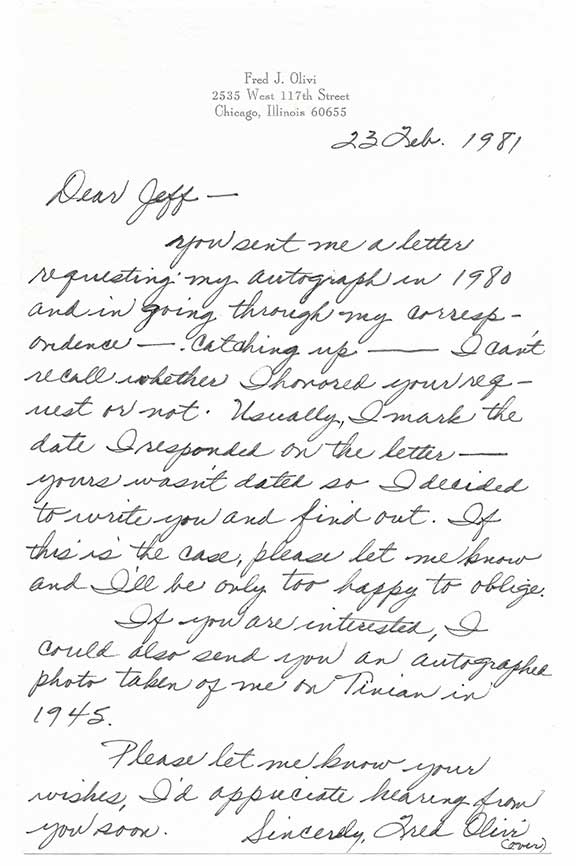 Fred J. Olivi
2535 West 117th Street
Chicago, Illinois 60655
23 Feb. 1981
Dear Jeff —
You sent me a letter
requesting my autograph in 1980
and in going through my corresp-
ondence — catching up — I can't
recall whether I honored your req-
uest or not. Usually, I mark the
date I responded on the letter —
yours wasn't dated so I decided
to write you and find out. If
this is the case, please let me know
and I'll be only too happy to oblige.
If you are interested, I
could also send you an autographed
photo taken of me on Tinian in
1945.
Please let me know your
wishes, I'd appciate hearing from
you soon. Sincerely, Fred Olivi
(over)